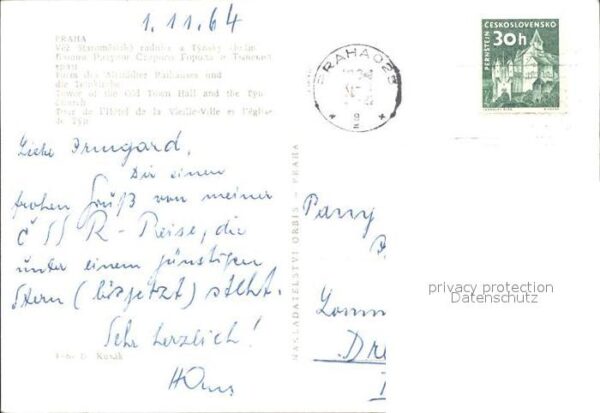 1.11.64
PRAHA
Věž Staroměstské radnice a Týnský chrám
Башня Ратуши Старого Города и Тынский
храм
Turm des Altstädter Rathauses und
die Teinkirche
Tower of the Old Town Hall and the Týn
church
Tour de l'Hôtel de la Vieille-Ville et l'église
de Týn
ČESKOSLOVENSKO
30h
PERNŠTEJN
PRAHA 025
Liebe Irmgard,
Dir einen
frohen Gruß von meiner
ČSSR-Reise, die
unter einem günstigen
Stern (bisjetzt) steht.
Sehr herzlich!
Hans
Foto Kusák
NAKLADATELSTVÍ ORBIS - PRAHA
Lomm
Dre
privacy protection
Datenschutz